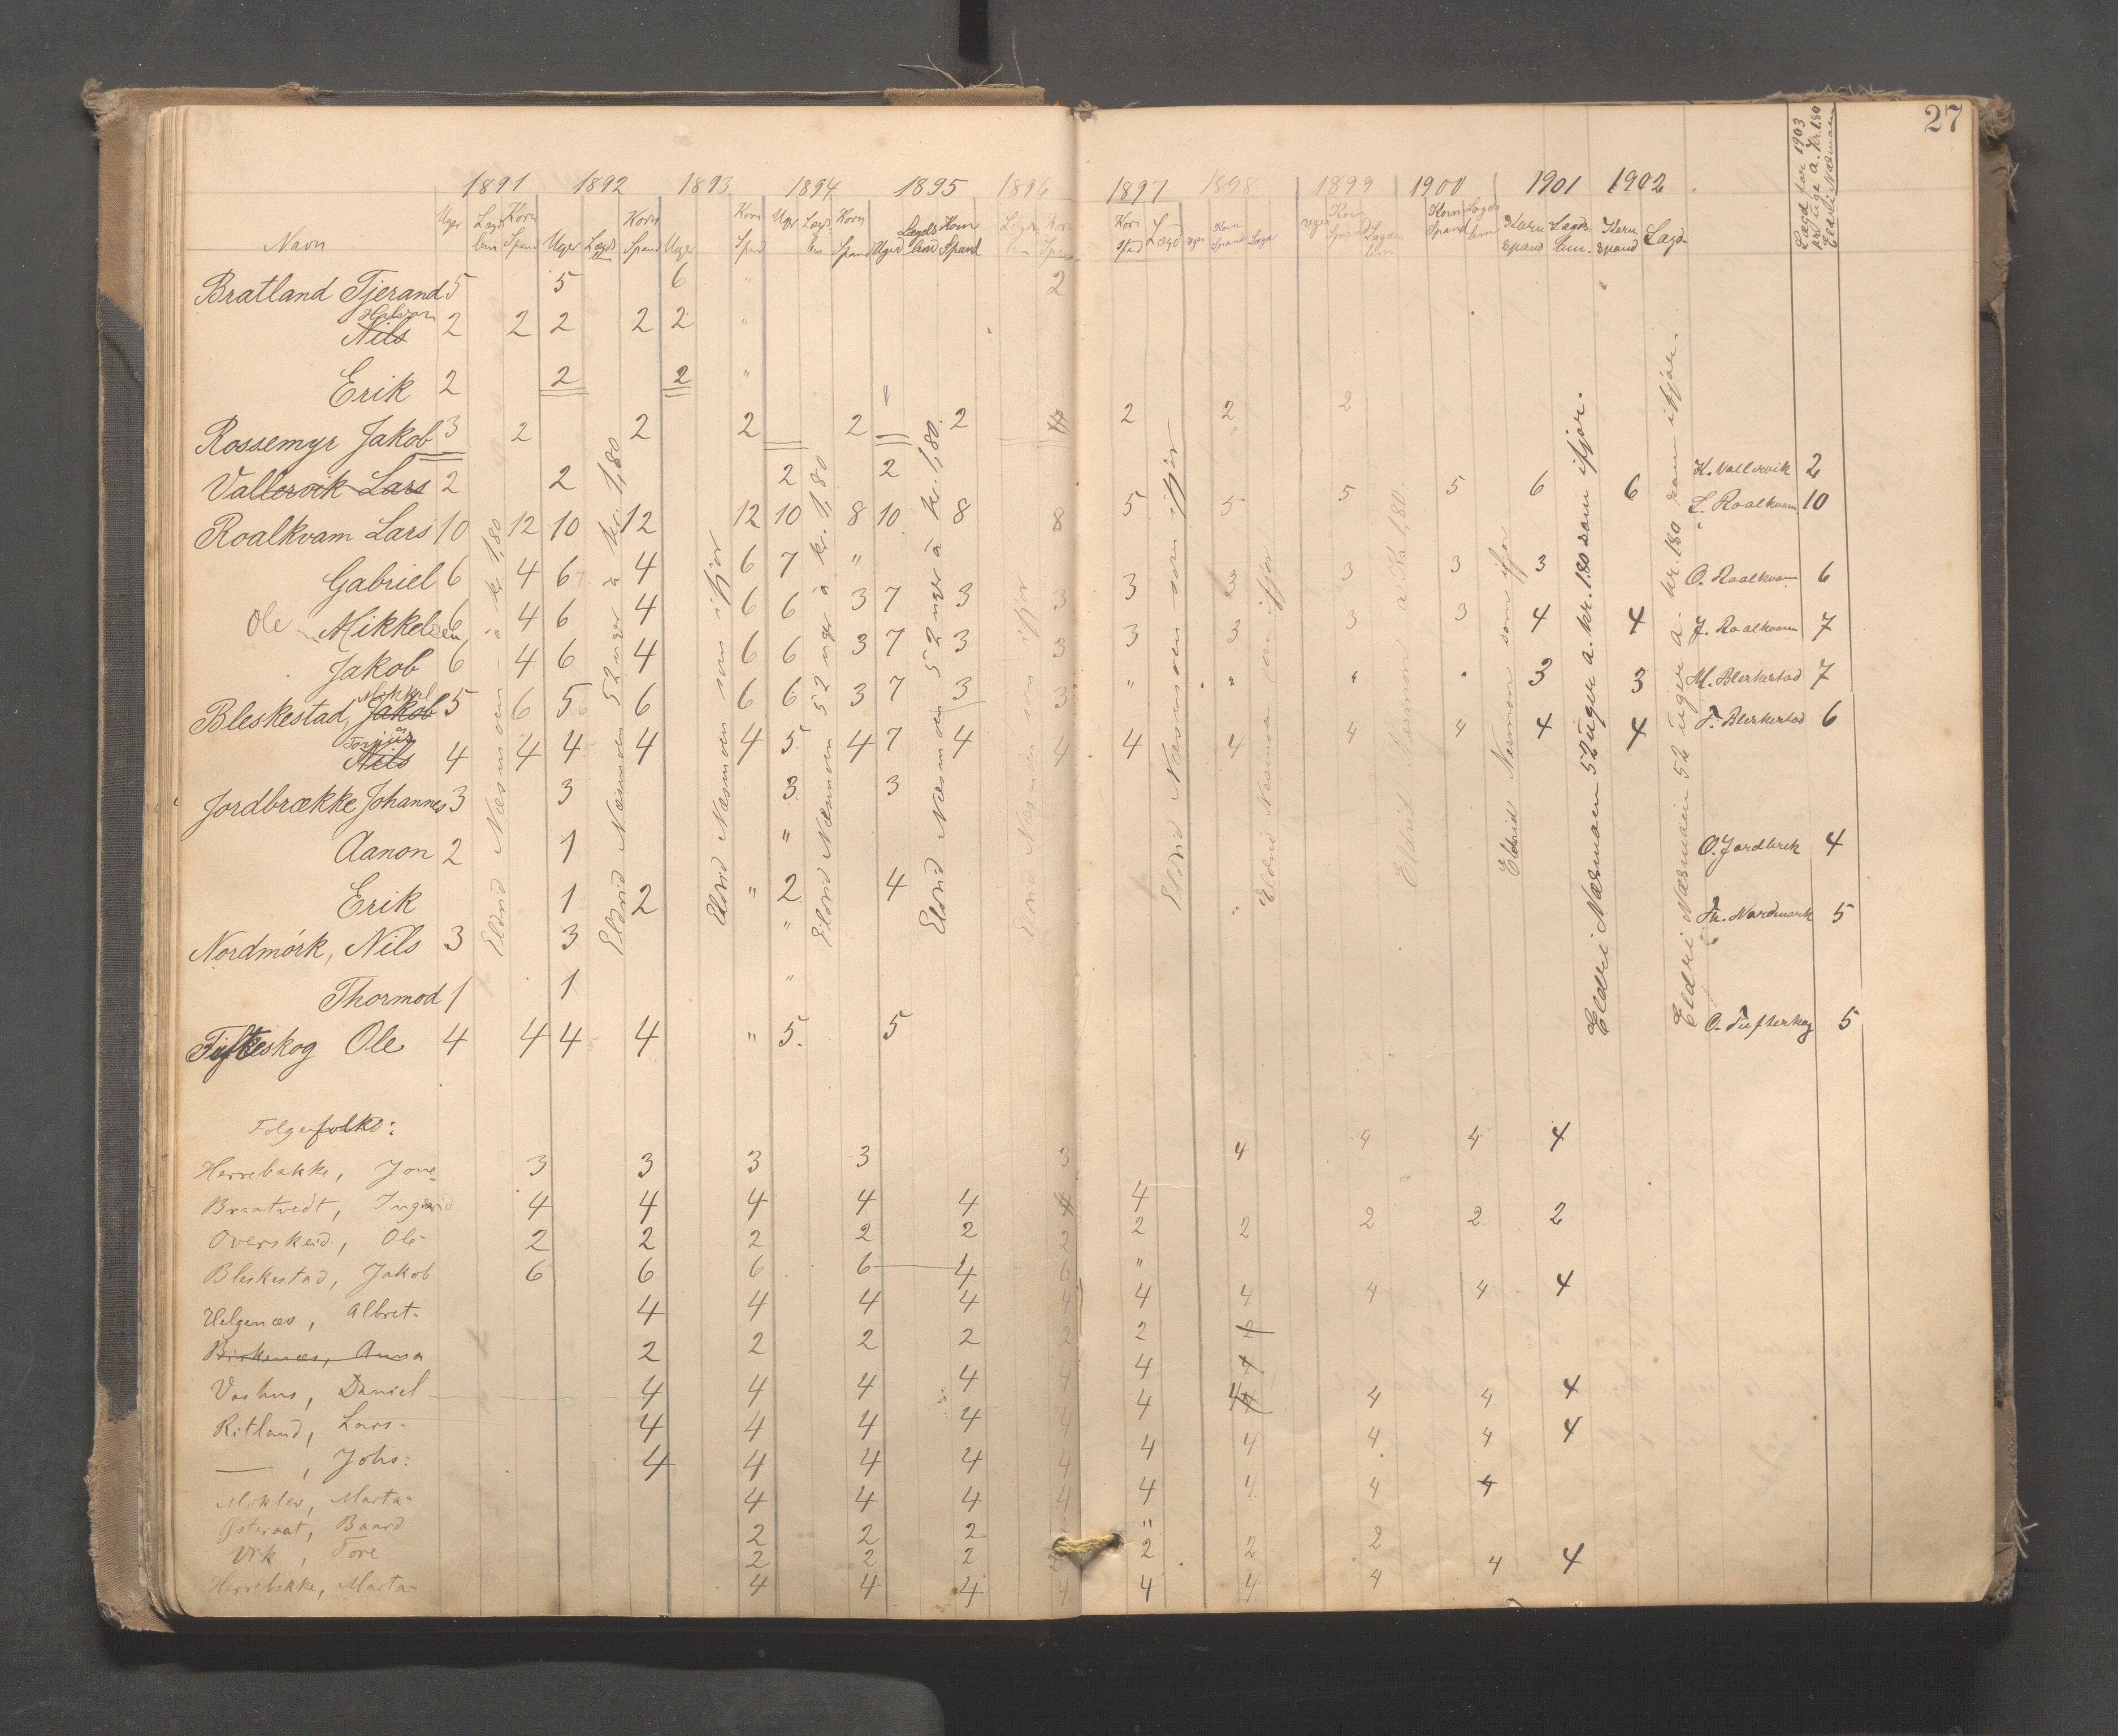 27
1891 1892 1893 1894 1895 1896 1897 1898 1899 1900 1901 1902
Lægd for 1903
pr. Uge a. Kr. 1.80
Eldri Næsmoen
Navn Uger Lægds lem Korn Spand Uger Lægds lem Korn Spand Uger Korn Spand Uger Lægds lem Korn Spand Uger Lægds lem Korn Spand Lægds lem Korn Spand Korn Spand Lægd Uger Korn Spand Lægd Uger Korn Spand Lægds lem Korn Spand Lægds lem Korn Spand Lægds lem. Korn Spand Lægd
Bratland Tjerand 5 5 6 " 2
Halvor
Nils 2 2 2 2 2 "
Erik 2 2 2 " "
Rossemyr Jakob 3 2 2 2 2 2 4 2 2 2
Vallervik Lars 2 2 2 2 K. Vallervik 2
Roalkvam Lars 10 12 10 12 12 10 8 10 8 8 5 5 5 5 6 6 L. Roalkvam 10
Gabriel 6 4 6 4 6 7 " O. Roalkvam 6
Ole Mikkelsen 6 4 6 4 6 6 3 7 3 3 3 3 3 3 3 J. Roalkvam 7
Jakob 6 4 6 4 6 6 3 7 3 3 3 3 3 3 4 4 M. Bleskestad 7
Mikkel
Bleskestad, Jakob 5 6 5 6 6 6 3 7 3 3 " " " " 3 3 T. Bleskestad 6
Torjus
Nils 4 4 4 4 4 5 4 7 4 4 4 4 4 4 4 4
Jordbrække Johannes 3 3 3 3
Aanon 2 1 " O. Jordbrek 4
Erik 1 2 " 2 4
Nordmórk, Nils 3 3 " Th. Nordmork 5
Thormod 1 1 "
Tyfteskog Ole 4 4 4 4 " 5. 5 O. Tufteskog 5
Eldrid Næsmoen à kr 1,80
Eldrid Næsmoen 52 uger à kr. 1,80
Eldrid Næsmoen som ifjor
Eldrid Næsmoen 52 uger à kr. 1,80
Eldrid Næsmoen 52 uger à kr. 1,80.
Eldrid Næsmoen som ifjor
Eldrid Næsmoen som ifjor
Eldrid Næsmoen som ifjor
Eldrid Næsmoen a Kr 1,80.
Eldrid Næsmoen som ifjor
Eldri Næsmoen 52 Uger a. kr. 1.80 som ifjor.
Eldri Næsmoen 52 Uger a. kr. 1.80 som ifjor.
Folgefolks:
Herrebakke, Jone 3 3 3 3 3 4 4 4 4
Braatvedt, Ingeborg 4 4 4 4 4 4 4
Overskeid, Ole 2 2 2 2 2 2 2 2 2 2 2
Bleskestad, Jakob 6 6 6 6 4 6 "
Helgenæs, Albret 4 4 4 4 4 4 4 4 4 4
Birkenæs, Anna 2 2 2 2 2 2 2
Vashus, Daniel 4 4 4 4 4 4 4
Ritland, Lars 4 4 4 4 4 4 4 4 4 4
— , Johs: 4 4 4 4 4 4 4 4 4 4
Moklev, Marta 4 4 4 4 4 4 4 4
Østeraat, Baard 2 2 2 "
Vik, Tore 2 2 2 2 2 2
Herrebakke, Marta 4 4 4 4 4 4 4 4 4